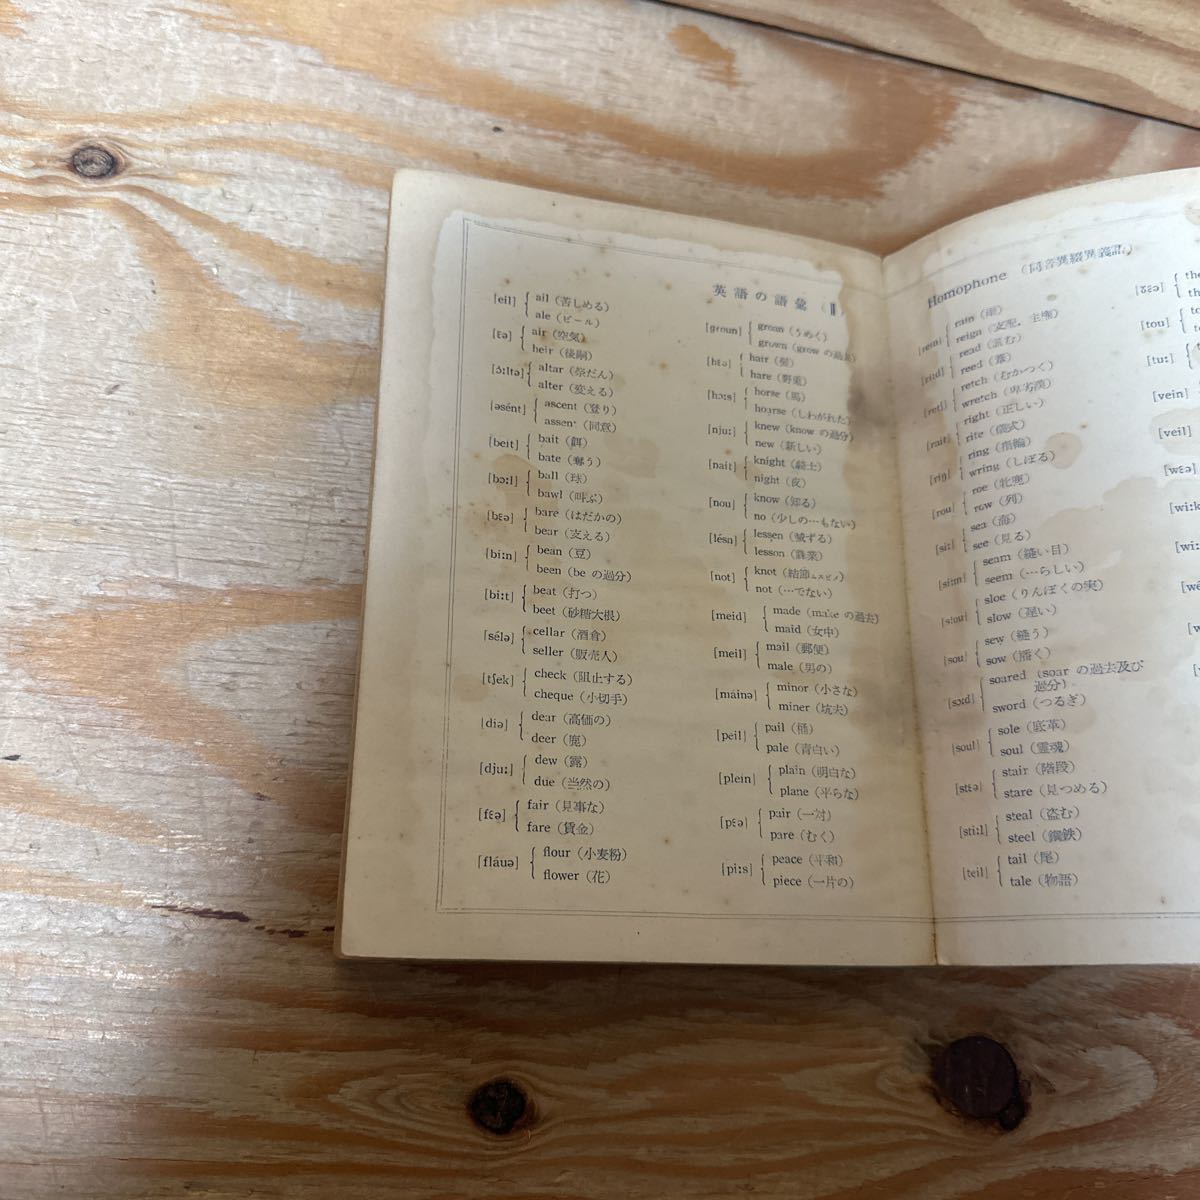 英語の語彙（Ⅱ）
[eil] ail（苦しめる）
ale（ビール）
[ɛə] air（空気）
heir（後嗣）
[ɔ́:ltə] altar（祭だん）
alter（変える）
[əsént] ascent（登り）
assent（同意）
[beit] bait（餌）
bate（奪う）
[bɔ:l] ball（球）
bawl（叫ぶ）
[bɛə] bare（はだかの）
bear（支える）
[bi:n] bean（豆）
been（be の過分）
[bi:t] beat（打つ）
beet（砂糖大根）
[sélə] cellar（酒倉）
seller（販売人）
[tʃek] check（阻止する）
cheque（小切手）
[diə] dear（高価の）
deer（鹿）
[dju:] dew（露）
due（当然の）
[fɛə] fair（見事な）
fare（賃金）
[fláuə] flour（小麦粉）
flower（花）
[groun] groan（うめく）
grown（grow の過去）
[hɛə] hair（髪）
hare（野兎）
[hɔ:s] horse（馬）
hoarse（しわがれた）
[nju:] knew（know の過分）
new（新しい）
[nait] knight（騎士）
night（夜）
[nou] know（知る）
no（少しの…もない）
[lésn] lessen（減ずる）
lesson（課業）
[not] knot（結節ムスビメ）
not（…でない）
[meid] made（make の過去）
maid（女中）
[meil] mail（郵便）
male（男の）
[máinə] minor（小さな）
miner（坑夫）
[peil] pail（桶）
pale（青白い）
[plein] plain（明白な）
plane（平らな）
[pɛə] pair（一対）
pare（むく）
[pi:s] peace（平和）
piece（一片の）
Homophone（同音異綴異義語）
[rein] rain（雨）
reign（支配，主権）
[ri:d] read（読む）
reed（葦）
[retʃ] retch（むかつく）
wretch（卑劣漢）
[rait] right（正しい）
rite（儀式）
[riŋ] ring（指輪）
wring（しぼる）
[rou] roe（牝鹿）
row（列）
[si:] sea（海）
see（見る）
[si:m] seam（縫い目）
seem（…らしい）
[slou] sloe（りんぼくの実）
slow（遅い）
[sou] sew（縫う）
sow（播く）
[sɔ:d] soared（soar の過去及び
過分）
sword（つるぎ）
[soul] sole（底革）
soul（霊魂）
[stɛə] stair（階段）
stare（見つめる）
[sti:l] steal（盗む）
steel（鋼鉄）
[teil] tail（尾）
tale（物語）
[ðɛə] the
the
[tou] to
to
[tu:]
[vein]
[veil]
[wɛə]
[wi:k
[wi:
[wé
[w